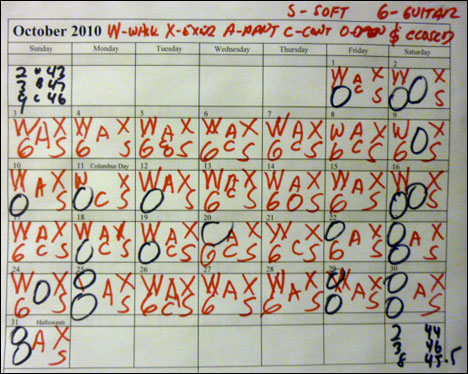 S - SOFT 6 - GUITAR
October 2010 W-WALK X-EXER C-CONT O-OPEN & CLOSED
Sunday Monday Tuesday Wednesday Thursday Friday Saturday
1 2
2 43
3 47
9 C 46
W A X O C S
W X O O S
3 4 5 6 7 8 9
W A X 6 S
W A X 6 S
W A X 6 C S
W A X 6 C S
W A X 6 C S
W A X 6 C S
W O X 6 S
10 11 Columbus Day 12 13 14 15 16
W A X O S
W X O C S
W A X O S
W A X 6 C S
W A X 6 O S
W A X 6 S
W X O O S
17 18 19 20 21 22 23
W A X 6 C S
W A X O C S
W A X O C S
O A X 6 C S
W X 6 C S
O A X 6 S
O A X O S
24 25 26 27 28 29 30
W O X 6 S
O A X O S
W A X 6 C S
W A X 6 S
W A X 6 S
W A X S
O A X O S
31 Halloween
8 A X S
2 44
3 46
8 45.5